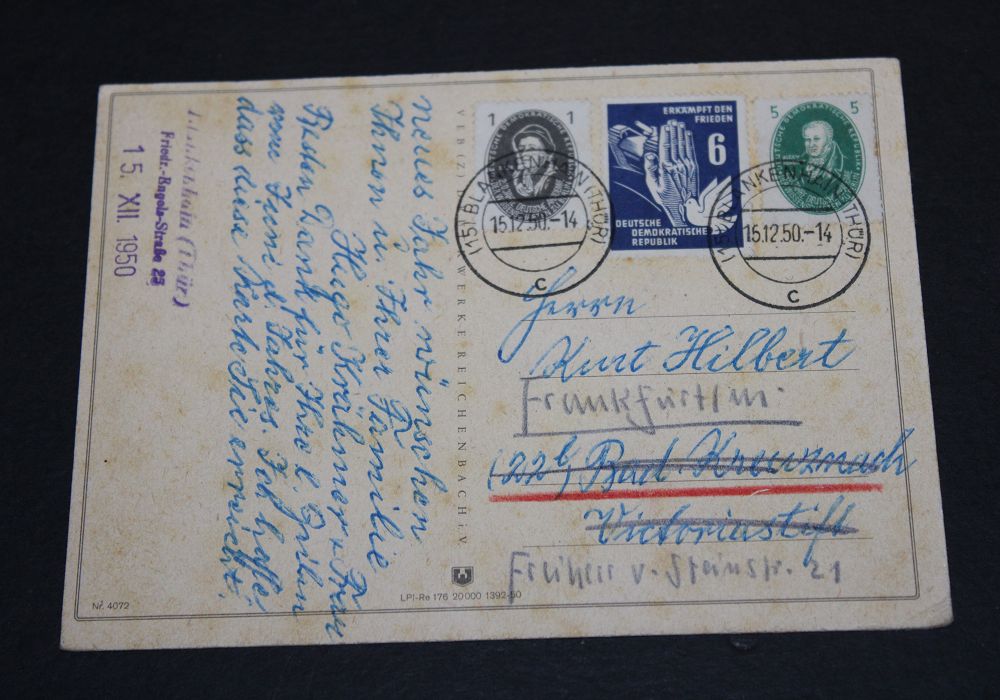 Blankenhain (Thür)
Friedr.-Engels-Straße 23
15. XII. 1950
neues Jahr wünschen
Ihnen u. Ihrer Familie
Hugo Krähmer u. Frau
Besten Dank für Ihre l. Grüße
vom Juni d. Jahres. Ich hoffe
dass diese Karte Sie erreicht.
1 1
DEUTSCHE DEMOKRATISCHE REPUBLIK
ERKÄMPFT DEN
FRIEDEN
6
DEUTSCHE
DEMOKRATISCHE
REPUBLIK
5 5
DEUTSCHE DEMOKRATISCHE REPUBLIK
(15) BLANKENHAIN (THÜR)
15.12.50.-14
c
(15) BLANKENHAIN (THÜR)
15.12.50.-14
c
Herrn
Kurt Hilbert
Frankfurt/m.
(22b) Bad Kreuznach
Victoriastift
Freiherr v. Steinstr. 21
REICHENBACH i. V.
Nr. 4072
LPI-Re 176 20000 1392-50